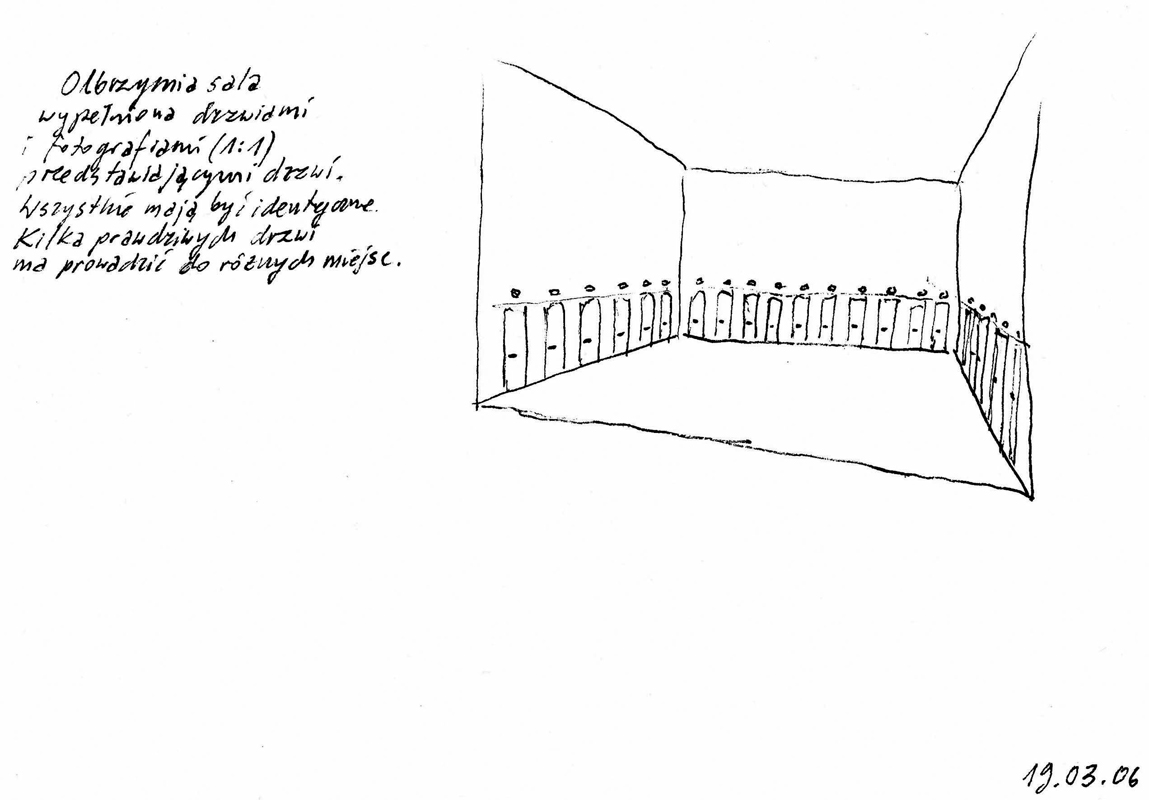 Olbrzymia sala
wypełniona drzwiami
i fotografiami (1:1)
przedstawiającymi drzwi.
Wszystkie mają być identyczne.
Kilka prawdziwych drzwi
ma prowadzić do różnych miejsc.
19.03.06